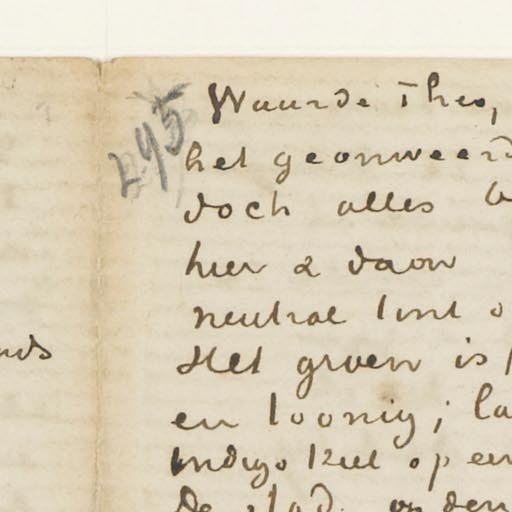 295
Waarde Theo,
het geonweerd
doch alles
hier & daar
neutrale tint
nds
Het groen is
en loonig; la
indigo kiel op een
de stad. op den